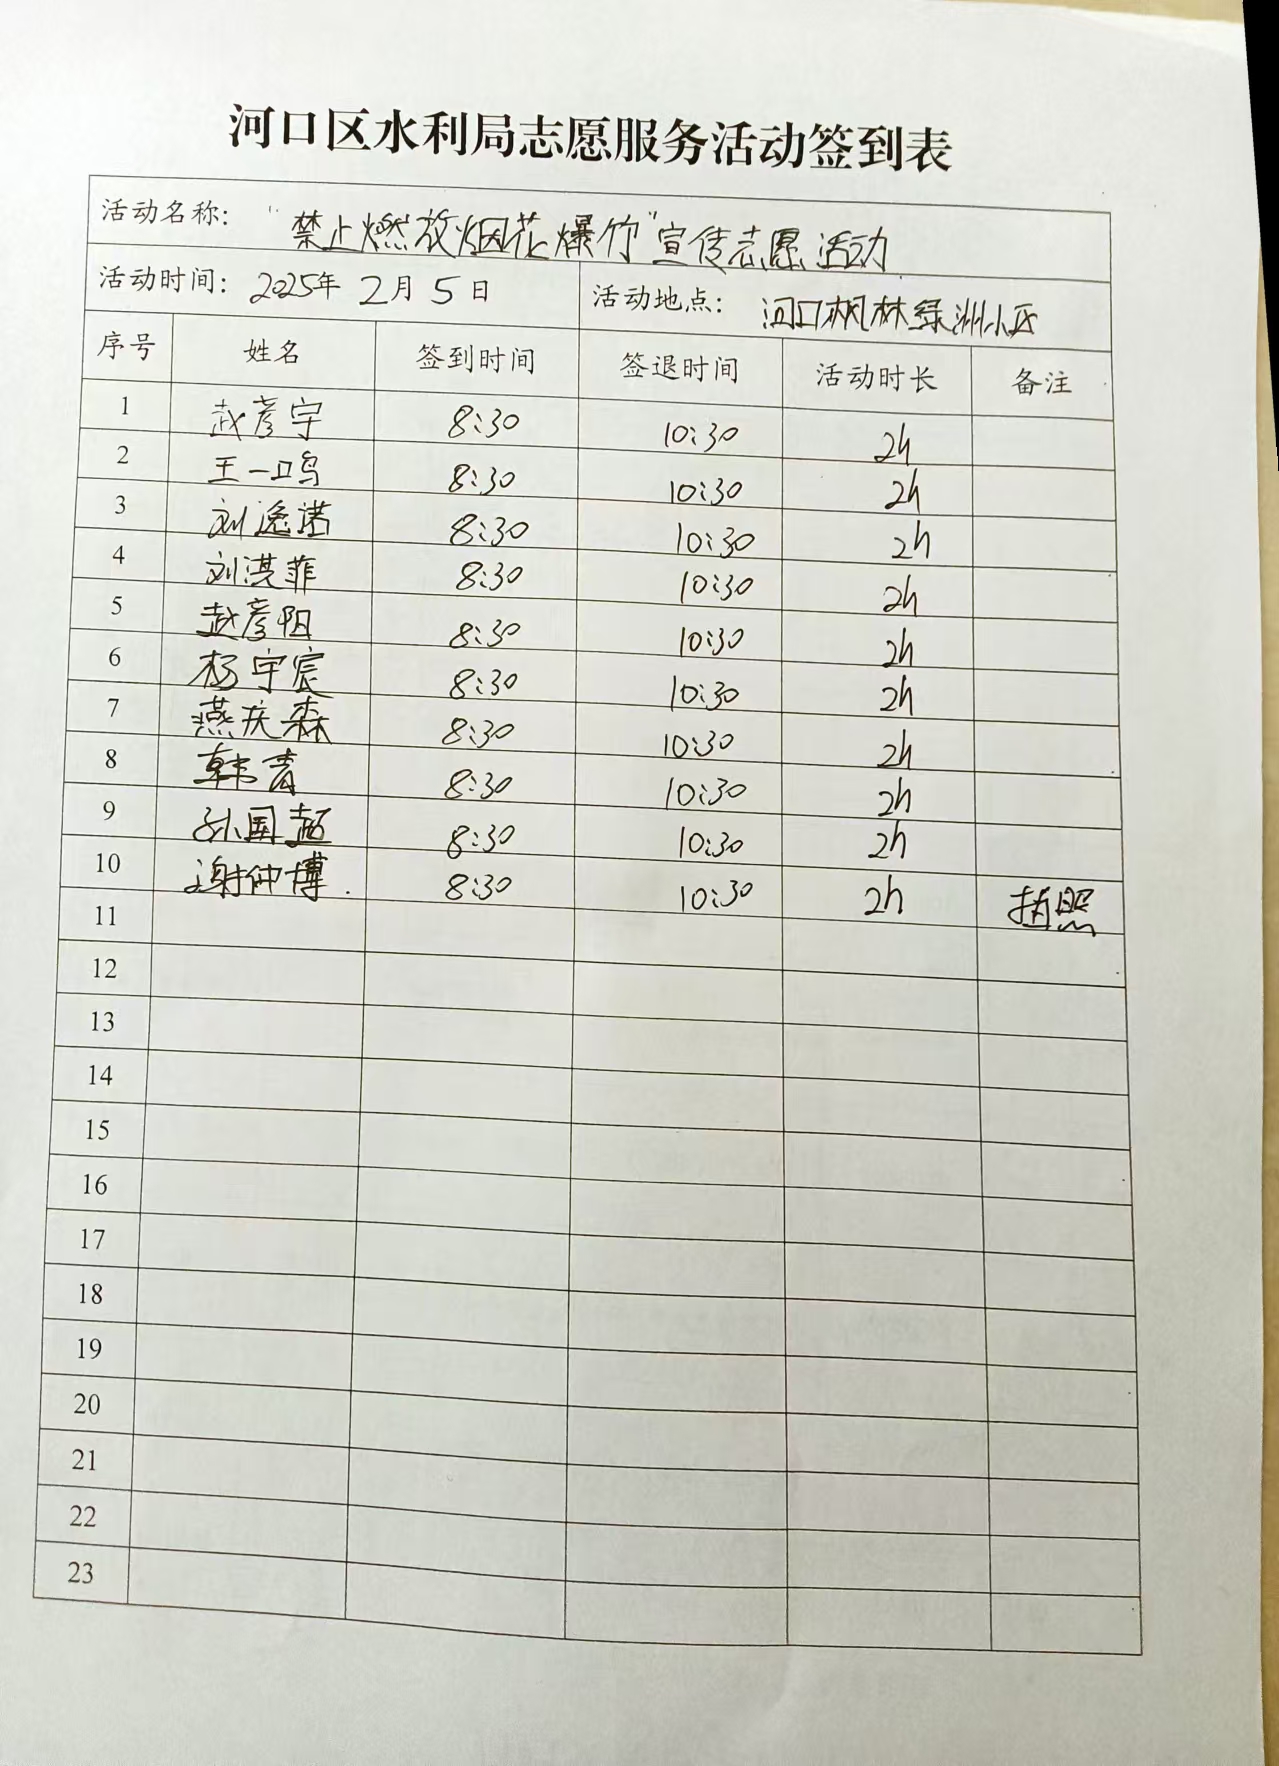 河口区水利局志愿服务活动签到表
活动名称："禁止燃放烟花爆竹"宣传志愿活动
活动时间：2025年 2月 5日 活动地点：河口枫林绿洲小区
序号 姓名 签到时间 签退时间 活动时长 备注
1 赵彦宇 8:30 10:30 2h
2 王一鸣 8:30 10:30 2h
3 刘逸诺 8:30 10:30 2h
4 刘淇菲 8:30 10:30 2h
5 赵彦阳 8:30 10:30 2h
6 杨宇宸 8:30 10:30 2h
7 燕庆森 8:30 10:30 2h
8 韩青 8:30 10:30 2h
9 孙国超 8:30 10:30 2h
10 谢仲博. 8:30 10:30 2h 拍照
11
12
13
14
15
16
17
18
19
20
21
22
23